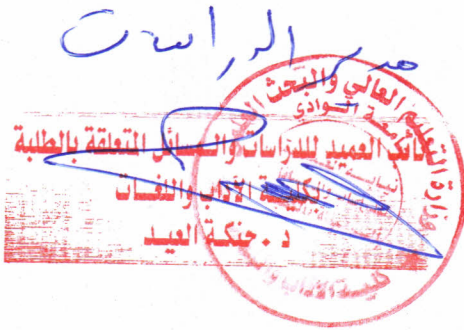 مدير الدراسات
وزارة التعليم العالي والبحث
الوادي
نائب العميد للدراسات والمسائل المتعلقة بالطلبة
بكلية الآداب واللغات
د. حنكة العيد
كلية الآداب